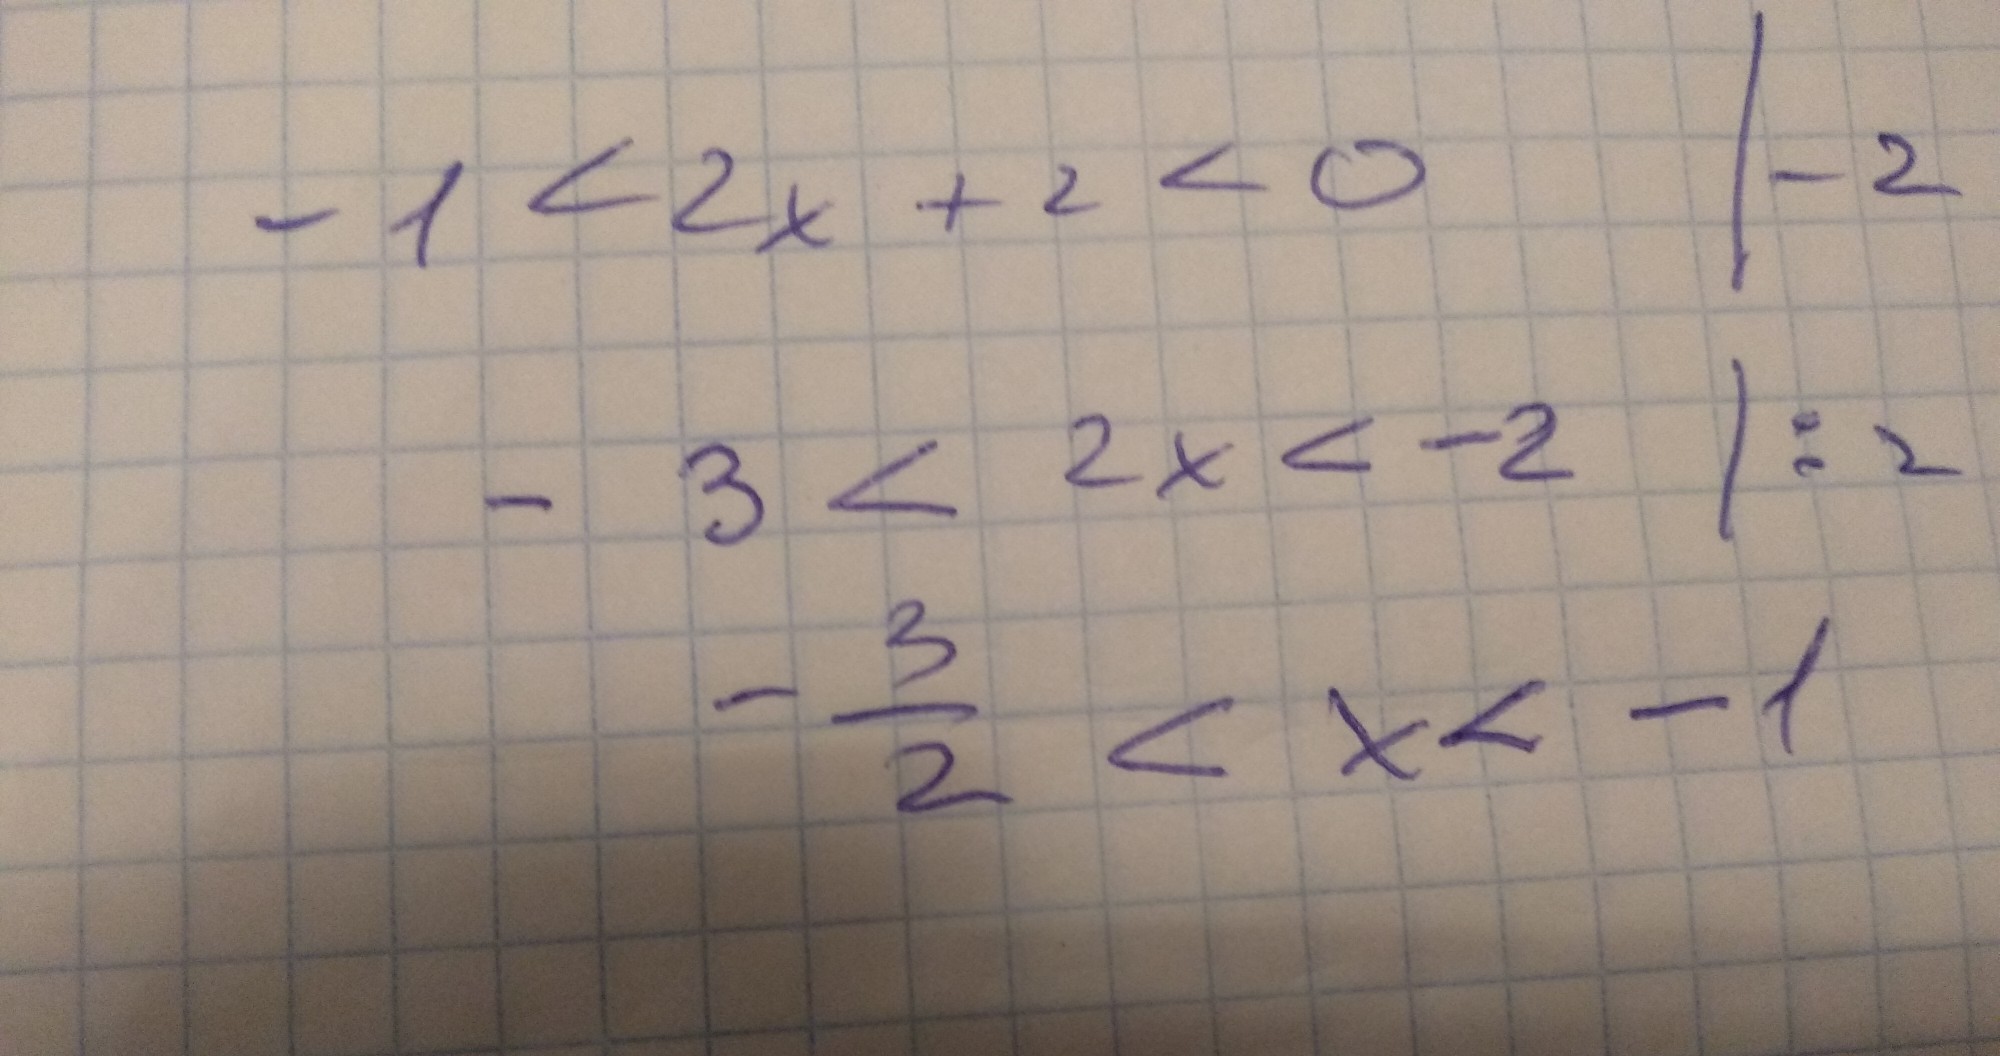 -1 < 2x + 2 < 0 | -2
-3 < 2x < -2 | : 2
-3/2 < x < -1